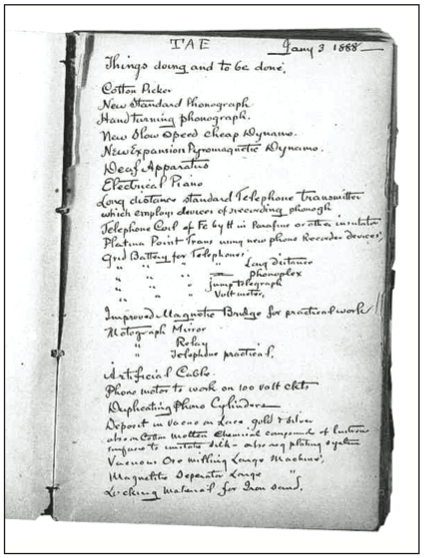 TAE Jany 3 1888
Things doing and to be done.
Cotton Picker
New Standard Phonograph
Hand turning phonograph.
New Slow Speed Cheap Dynamo.
New Expansion Pyromagnetic Dynamo.
Deaf Apparatus
Electrical Piano
Long distance standard Telephone transmitter
which employs devices of recording phonogh
Telephone Coil of Fe by H in Parafine or other insulator
Platina Point Trans using new phono Recorder devices,
Grd Battery for Telephones
" " " " Long distance
" " " Phonoplex
" " " jump telegraph
" " " Volt meter,
Improved Magnetic Bridge for practical work
Motograph Mirror
" Relay
" Telephone practical,
Artificial Cable
Phono motor to work on 100 volt ckts
Duplicating Phono Cylinders
Deposit in vacuo on Lace, gold & silver
also on Cotton molten chemical compound of lustrous
surface to imitate silk - also reg plating system
Vacuous Ore milling Large Machine,
Magnetic Seperator Large "
Locking Material for Iron sand,